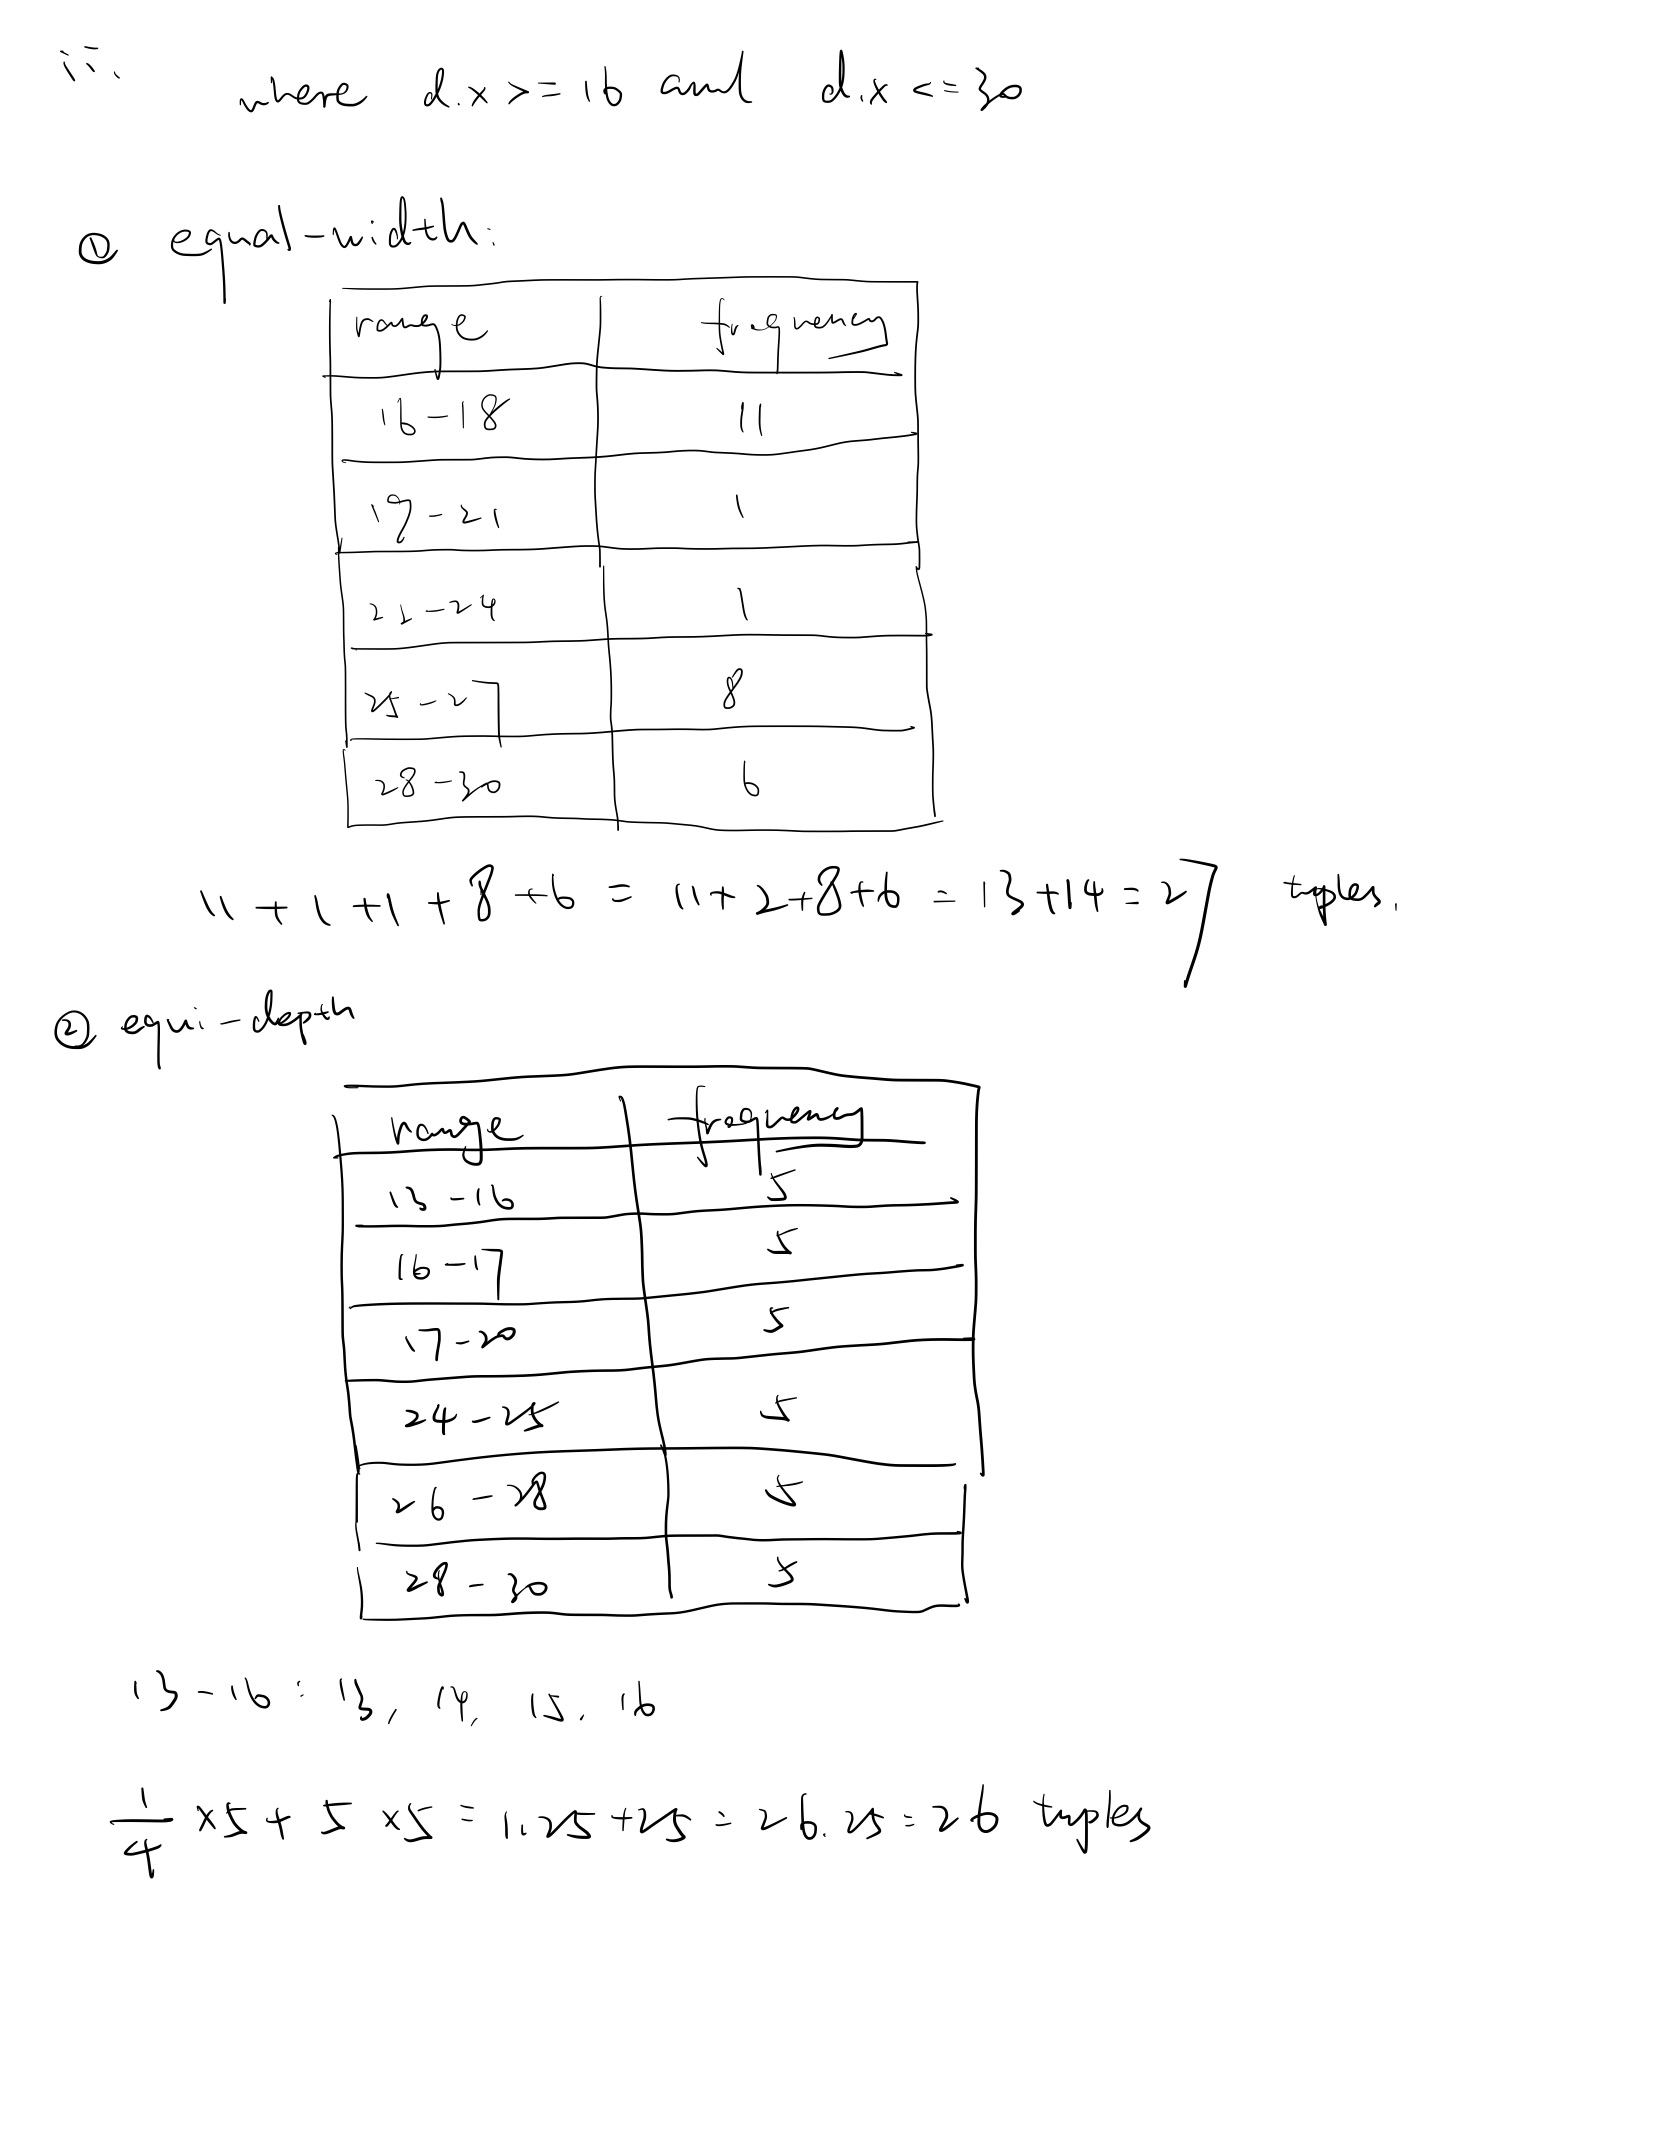 ii.
where d.x >= 16 and d.x <= 30
① equal-width:
range frequency
16-18 11
19-21 1
21-24 1
25-27 8
28-30 6
11 + 1 + 1 + 8 + 6 = 11 + 2 + 8 + 6 = 13 + 14 = 27 tuples.
② equi-depth
range frequency
13-16 5
16-17 5
17-20 5
24-25 5
26-28 5
28-30 5
13-16: 13, 14, 15, 16
1/4 × 5 + 5 × 5 = 1.25 + 25 = 26.25 = 26 tuples